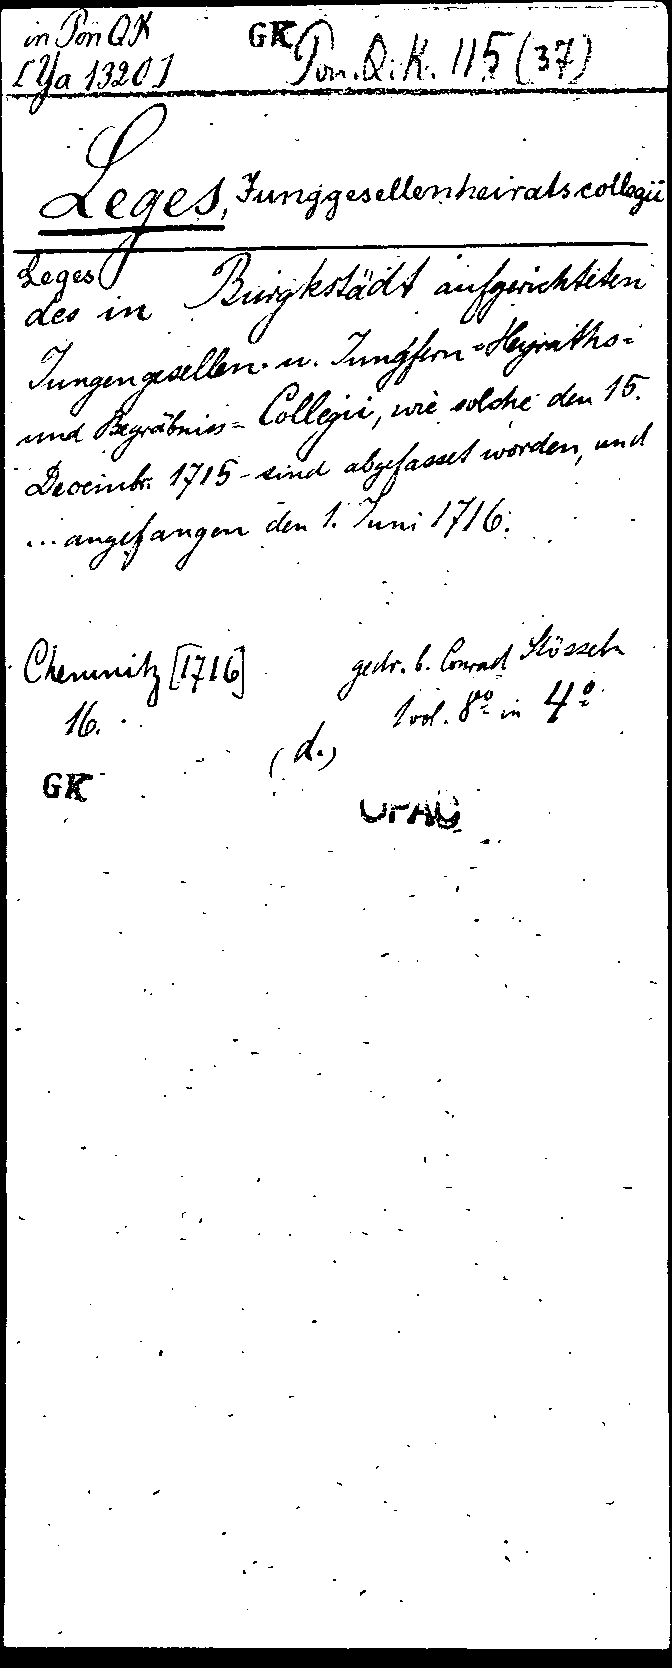 in Pon QK
GK Pon. Q. K. 115 (37)
[Ya 1320]
Leges, Junggesellenheiratscollegii
Leges
des in Burgkstädt aufgerichteten
Jungengesellen- u. Jungfern-Heyraths-
und Begräbnis-Collegii, wie solche den 15.
Decembr. 1715 sind abgefasset worden, und
... angefangen den 1. Juni 1716.
Chemnitz [1716] gedr. b. Conrad Stösseln
16. 1 vol. 8º in 4º
(d.)
GK